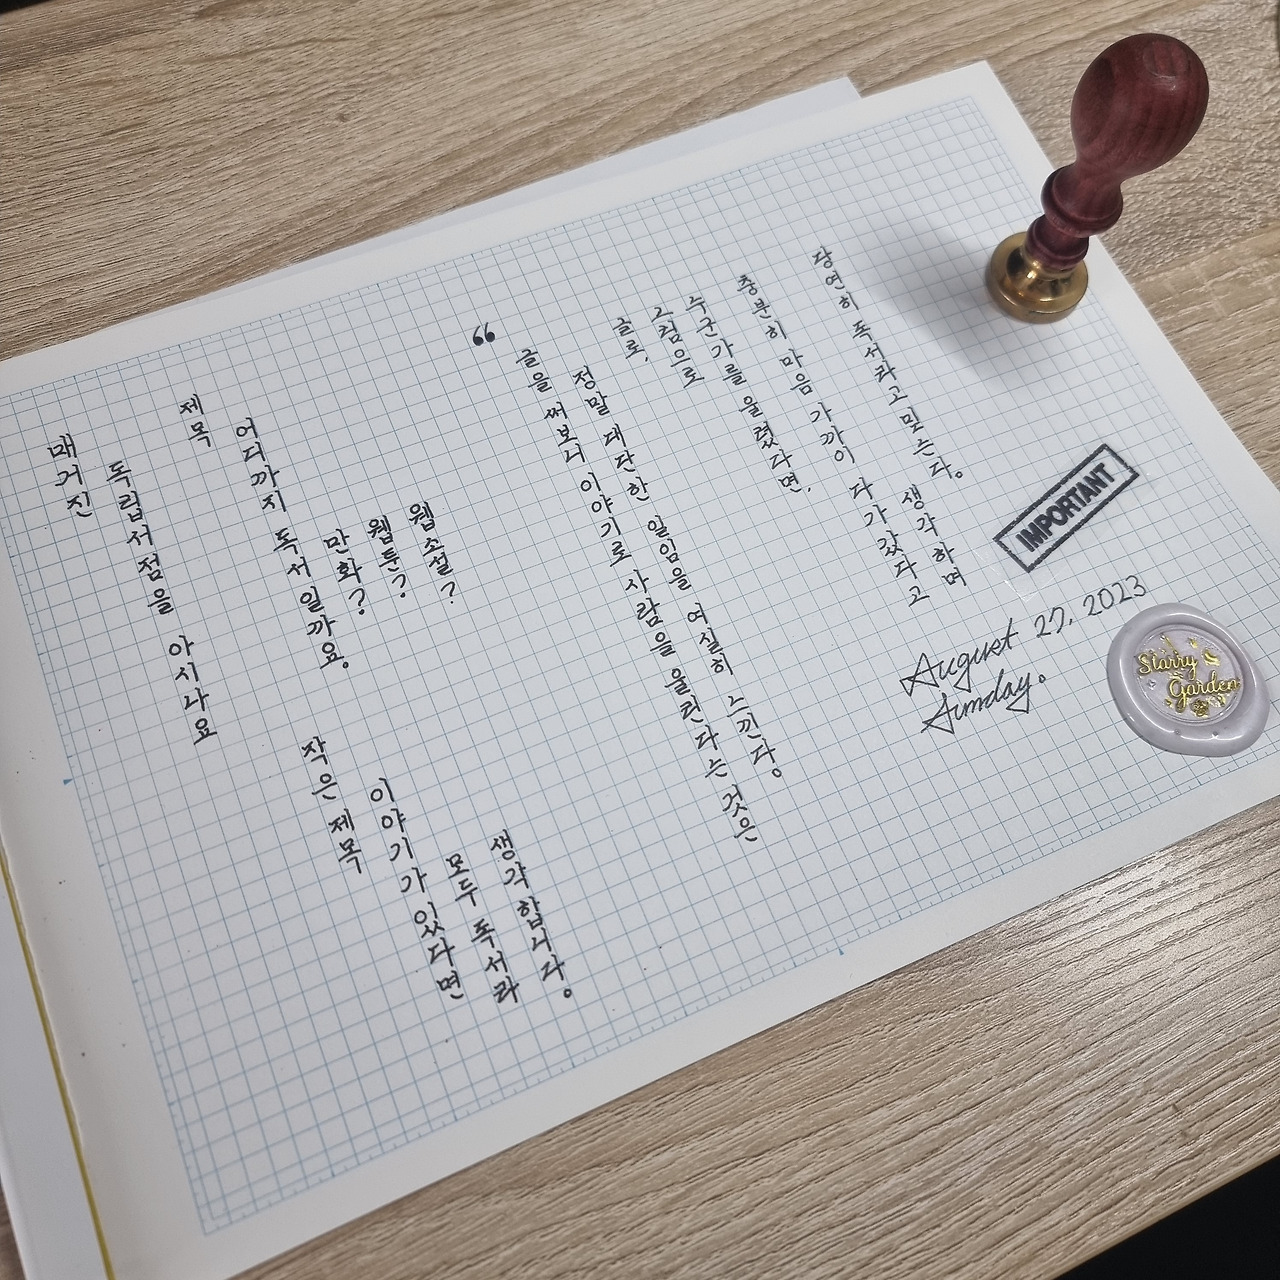 매거진
독립서점을 아시나요
제목
어디까지 독서일까요.
만화?
웹툰?
웹소설?
작은 제목
이야기가 있다면
모두 독서라
생각합니다.
“
글을 써보니 이야기로 사람을 울린다는 것은
정말 대단한 일임을 여실히 느낀다.
글로,
그림으로
누군가를 울렸다면,
충분히 마음 가까이 다가갔다고
생각하며
당연히 독서라고 믿는다.
IMPORTANT
August 27, 2023
Sunday.
Starry
Garden